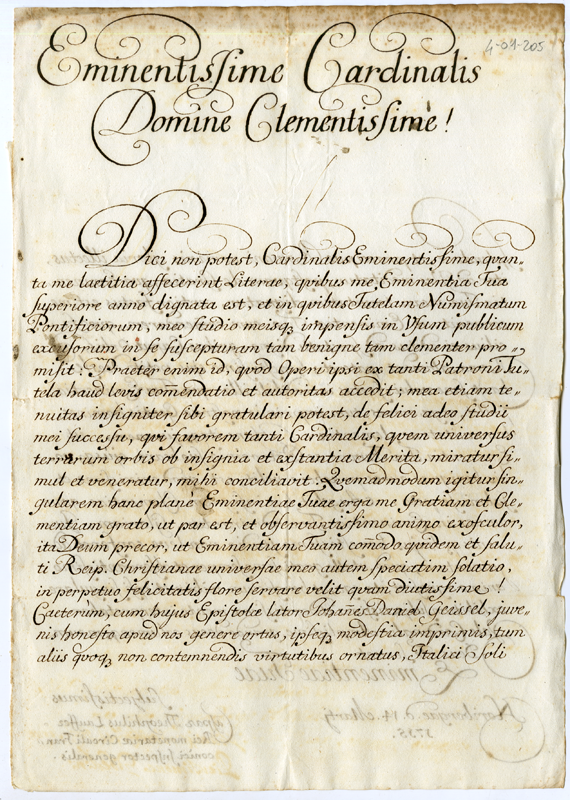 4-04-205
Eminentissime Cardinalis
Domine Clementissime!
Dici non potest, Cardinalis Eminentissime, quan„
ta me laetitia affecerint Literae, quibus me, Eminentia Tua
superiore anno dignata est, et in quibus Tutelam Numismatum
Pontificiorum, meo studio meisq, impensis in Usum publicum
excusorum in se suscepturam tam benigne tam clementer pro„
misit: Praeter enim id, quod Operi ipsi ex tanti Patroni Tu„
tela haud levis com̄endatio et autoritas accedit; mea etiam te„
nuitas insigniter sibi gratulari potest, de felici adeo studii
mei successu, qui favorem tanti Cardinalis, quem universus
terrarum orbis ob insignia et exstantia Merita, miratur si„
mul et veneratur, mihi conciliavit. Quemadmodum igitur sin„
gularem hanc planè Eminentiae Tuae erga me Gratiam et Cle„
mentiam grato, ut par est, et observantissimo animo exosculor,
ita Deum precor, ut Eminentiam Tuam com̄odo quidem et salu„
ti Reip. Christianae universae meo autem speciatim solatio,
in perpetuo felicitatis flore servare velit quam diutissime!
Caeterùm, cum hujus Epistolae lator Johañes Daniel Geissel, juve„
nis honesto apud nos genere ortus, ipseq, modestia imprimis, tum
aliis quoq, non contemnendis virtutibus ornatus, Italici Soli